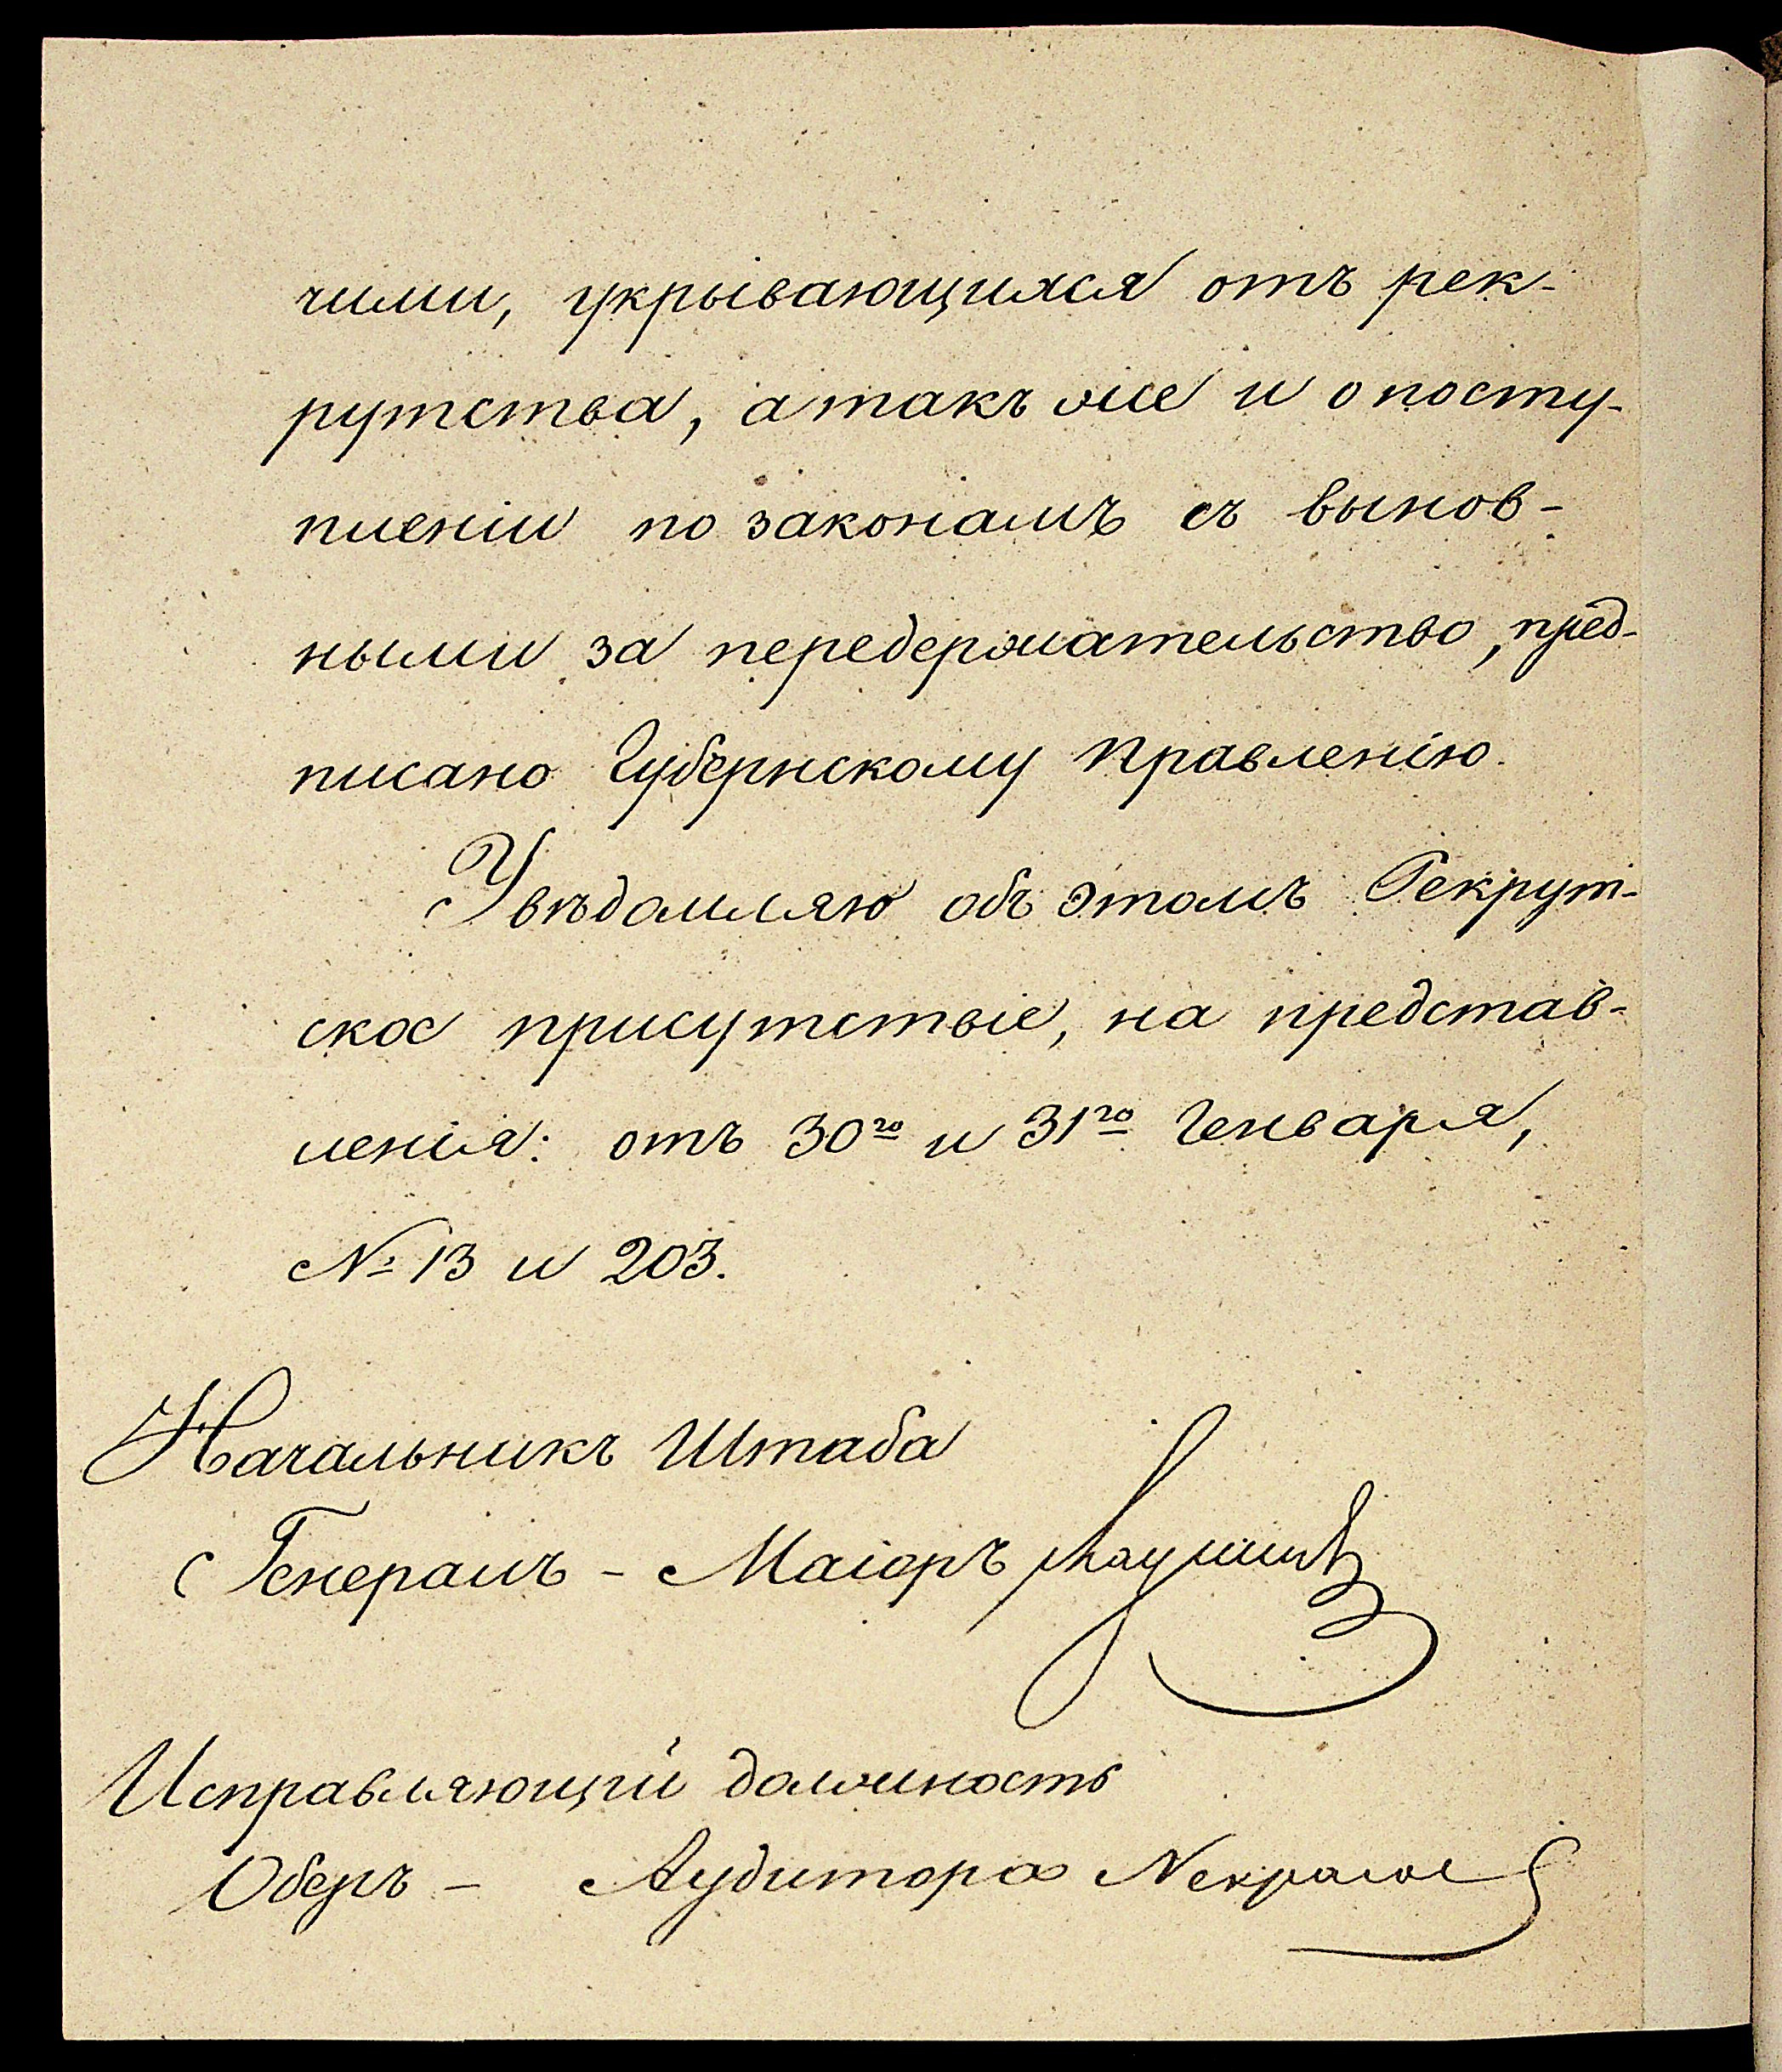 чими, укрывающимся отъ рек-
рутства, а такъ же и о посту-
пленіи по законамъ съ вынов-
ными за передержательство, пред-
писано Губернскому Правленію.
Увѣдомляю объ этомъ Рекрут-
ское присутствіе, на представ-
ленія: отъ 30го и 31го Генваря,
№ 13 и 203.
Начальникъ Штаба
Генералъ - Маіоръ
Исправляющій должность
Оберъ - Аудитора Некрасов